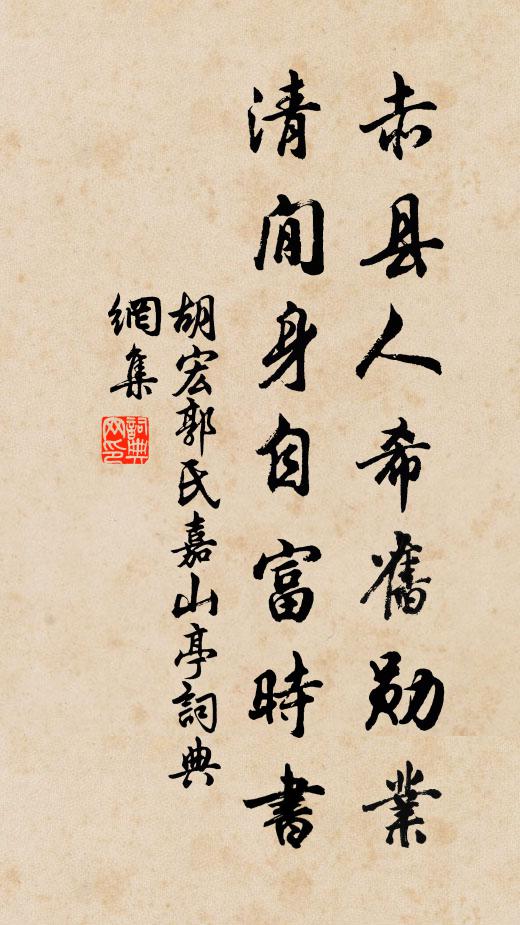 赤县人希舊勋業
清閒身自富時書
胡宏郭氏嘉山亭詞典
網集
詞典
网印